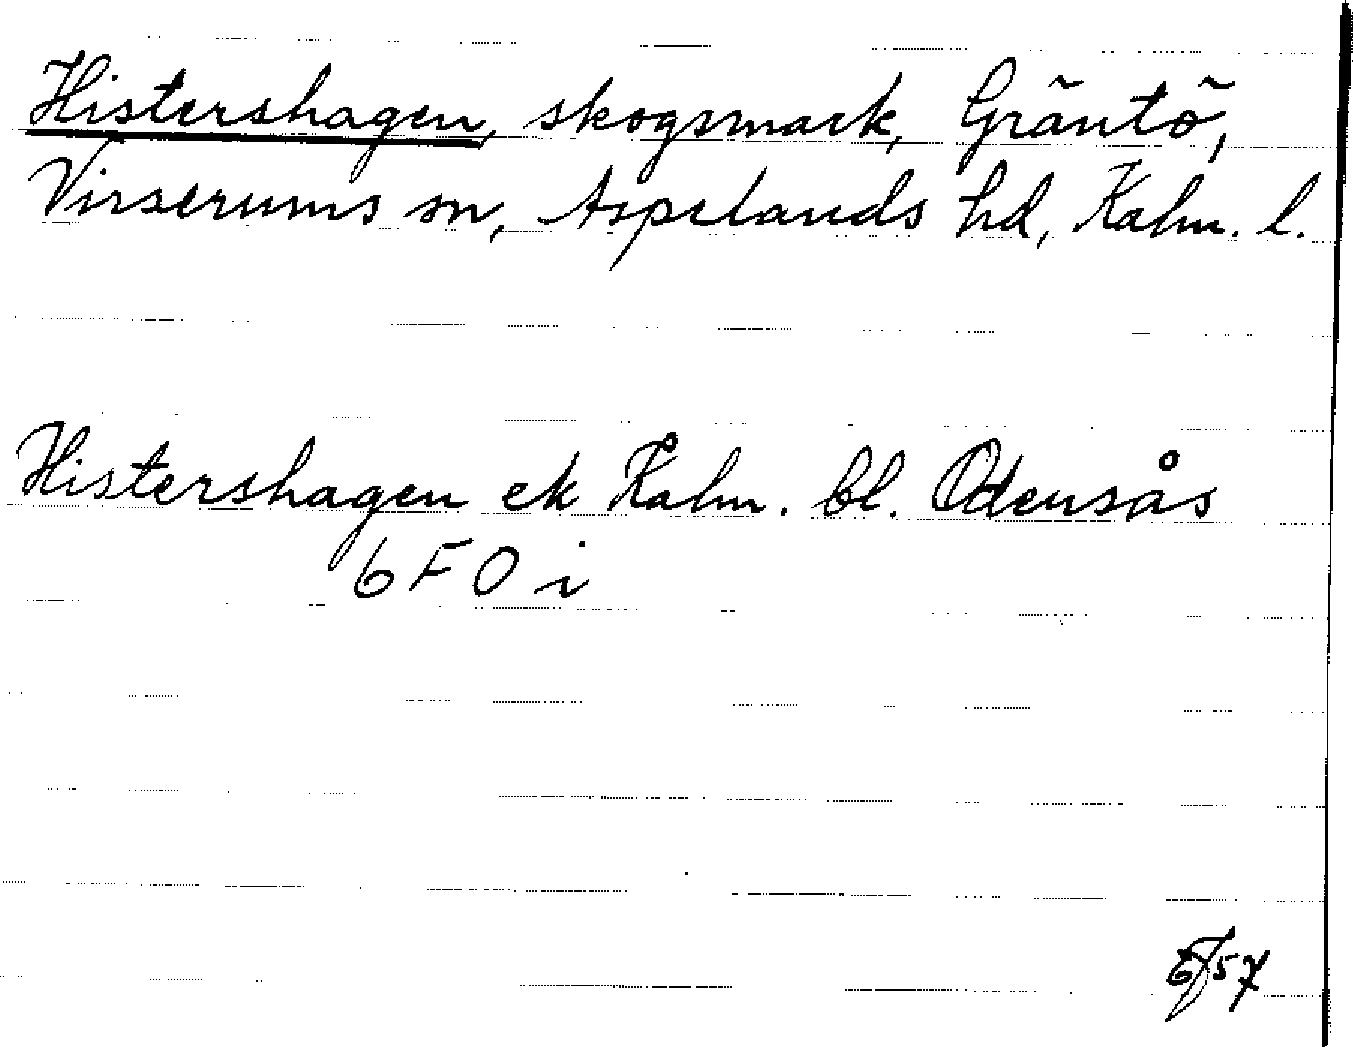 Histershagen, skogsmark, Gräntö,
Virserums sn, Aspelands hd, Kalm. l.
Histershagen ek Kalm. bl. Odensås
6 F 0 i
57